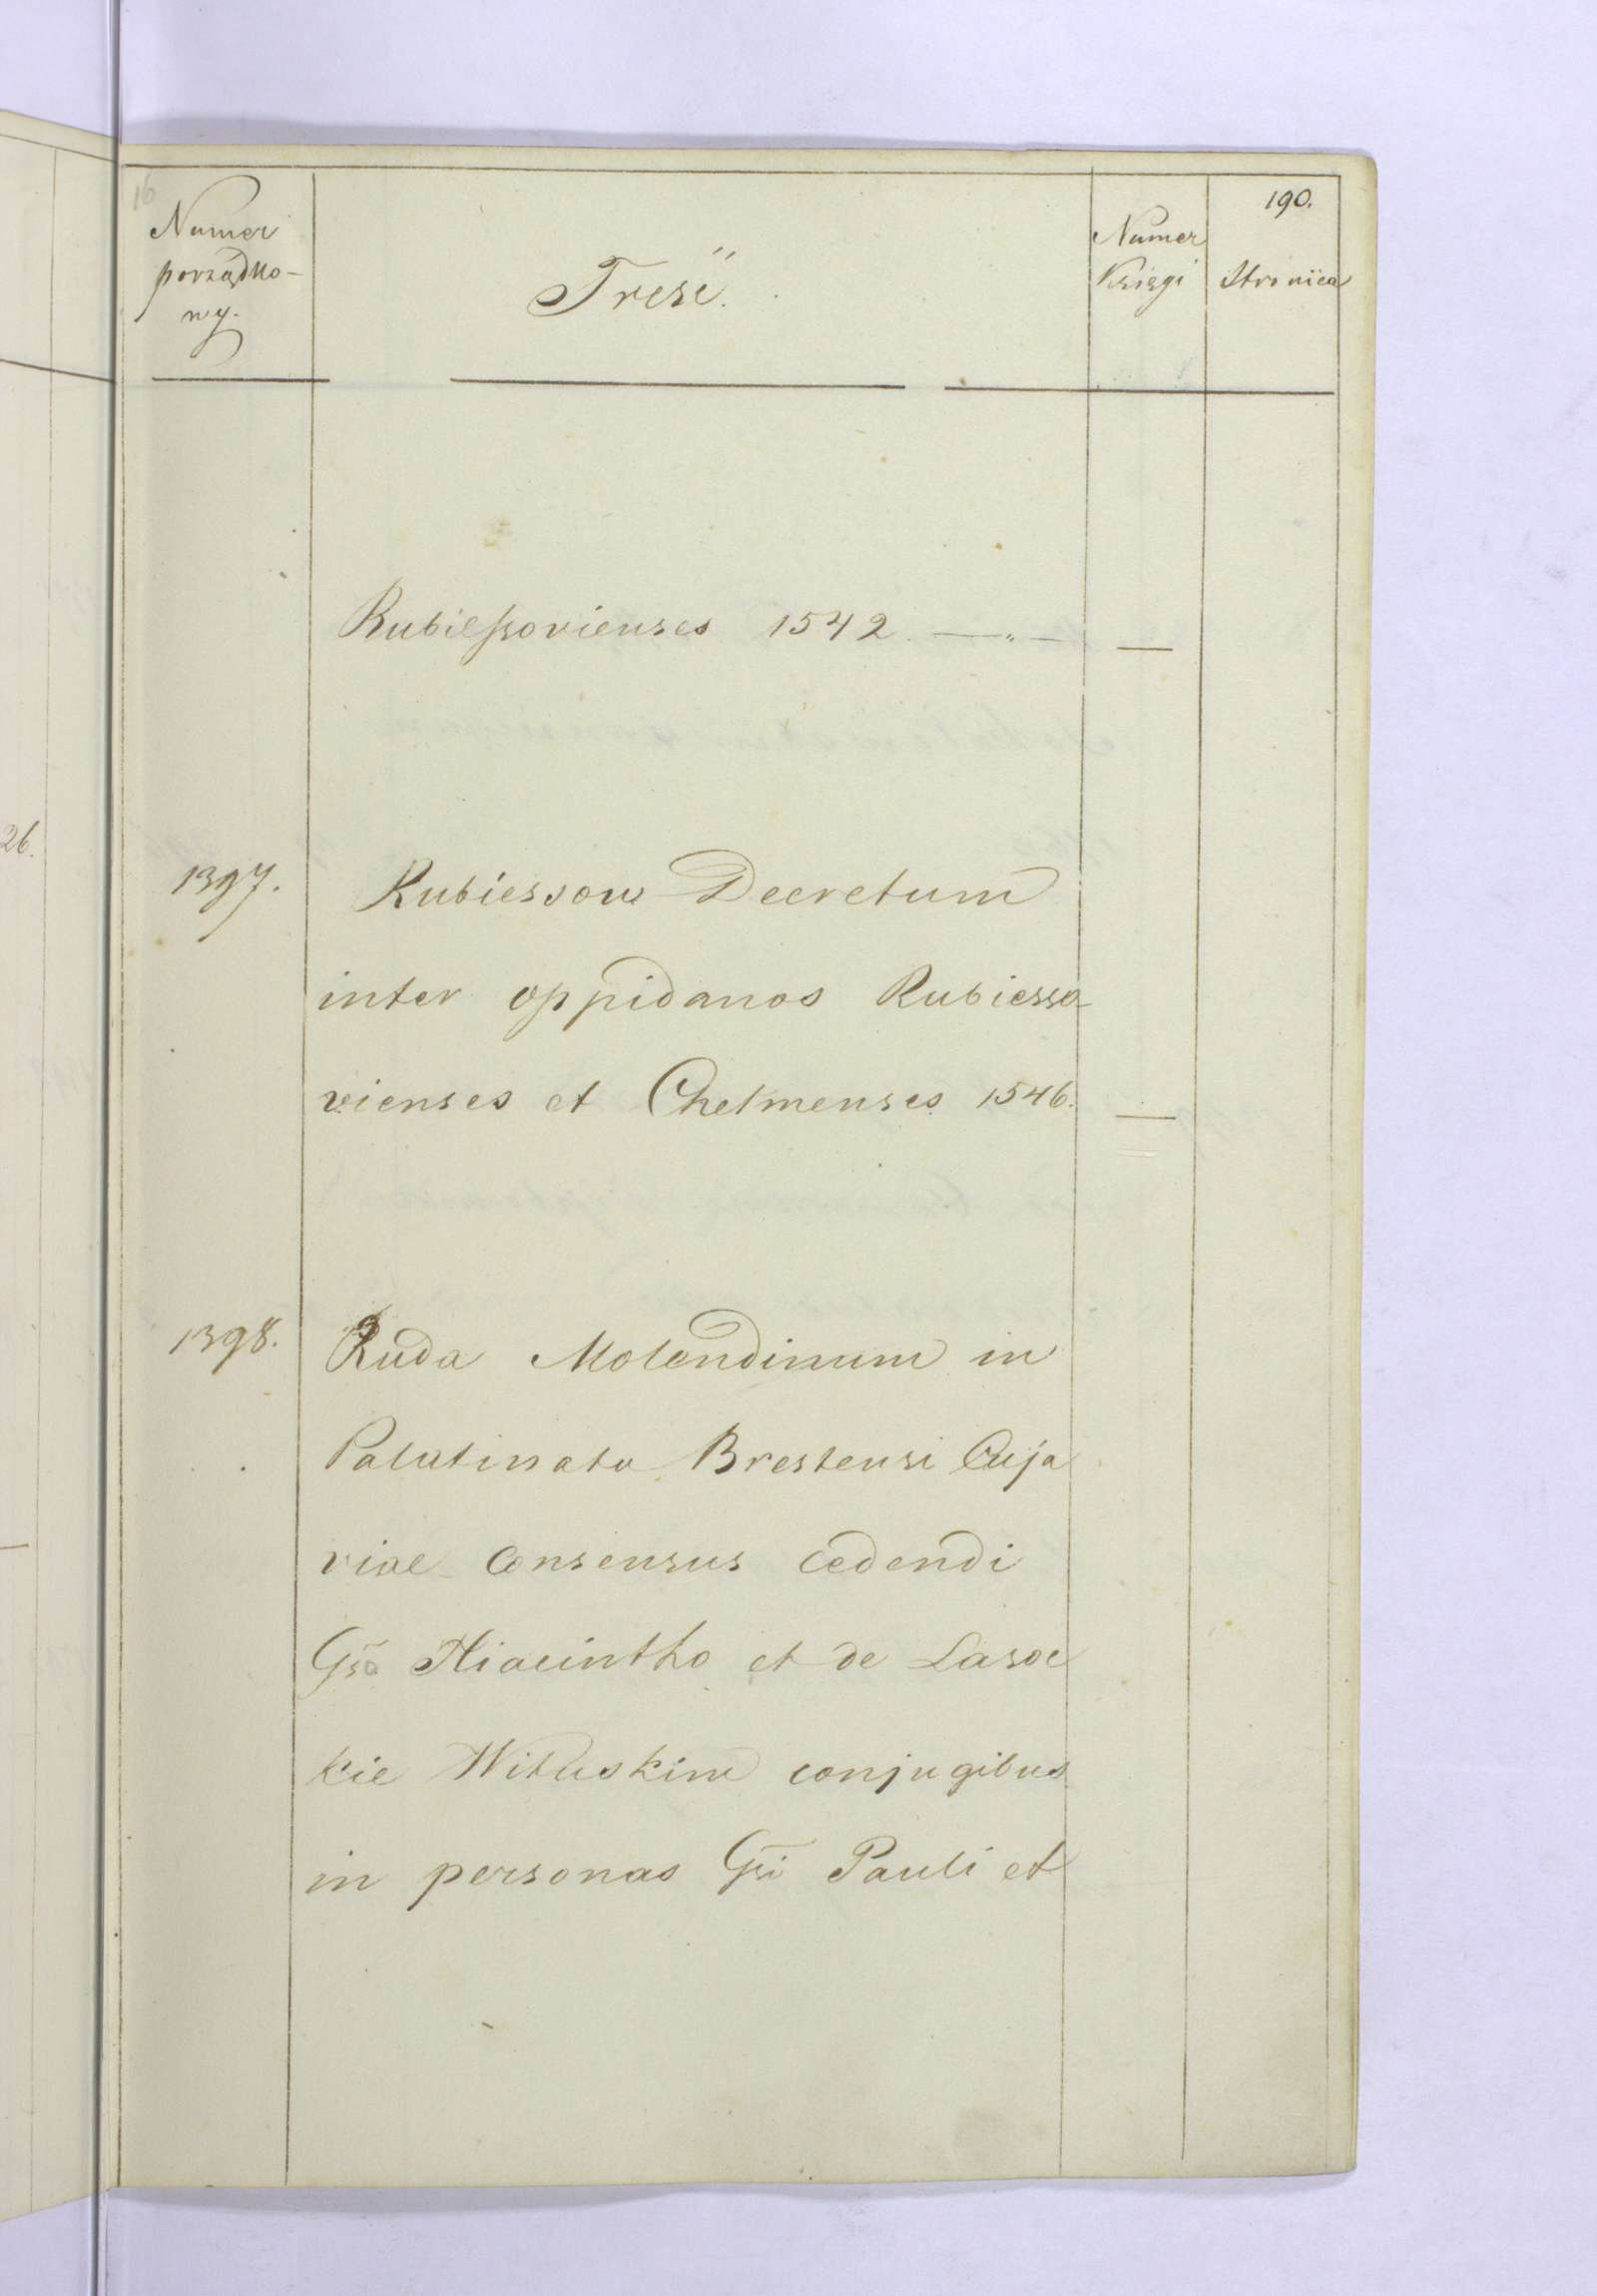 16
190.
Numer
porządko-
wy.
Treść.
Numer
Księgi
Stronica
Rubieſsovienses 1542. — „ —
—
26.
1397.
Rubiessow Decretum
inter oppidanos Rubiesso
vienses et Chelmenses 1546.
—
1398.
Ruda Molendinum in
Palatinatu Brestensi Cuja
viae Consensus cedendi
Gso Hiacintho et de Lasoc
kie Wituskim conjugibus
in personas Gsi Pauli et